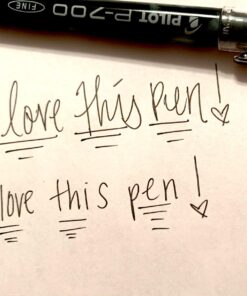 FINE PILOT P-700
love this pen!
love this pen!